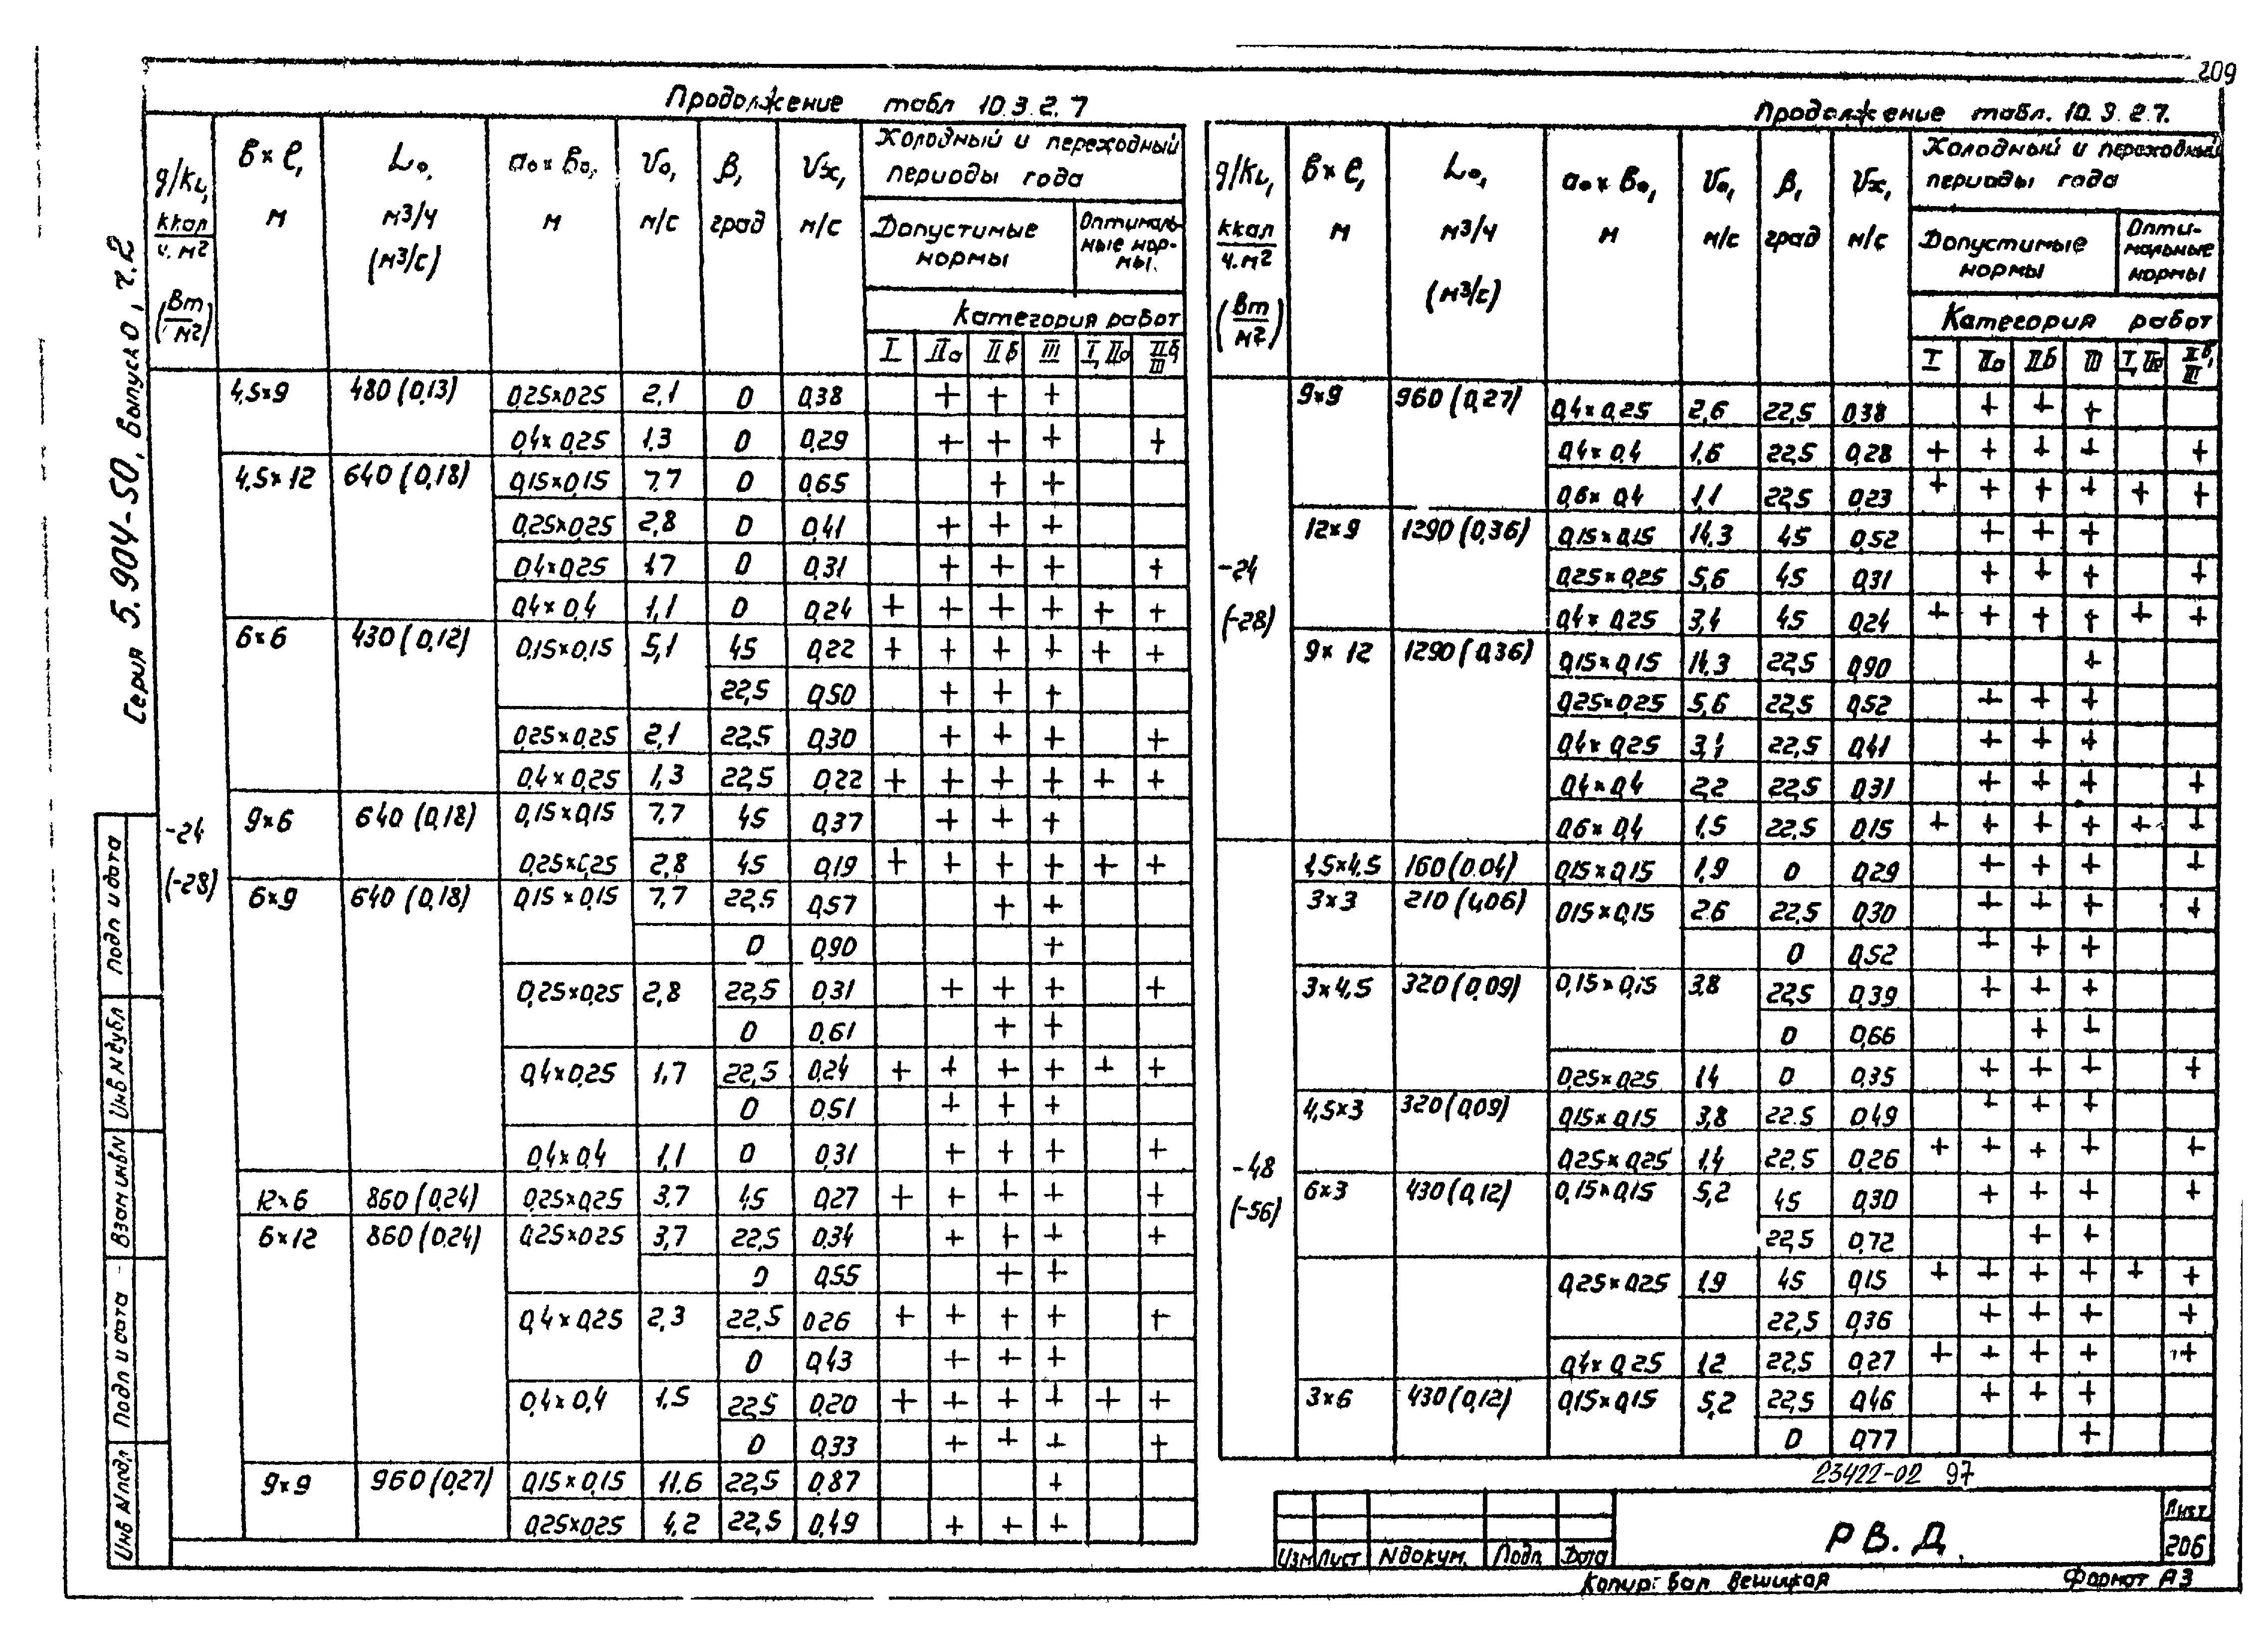 209
Серия 5.904-50, Выпуск 0, ч.2
Продолжение табл 10.3.2.7
g/KL, ккал/ч.м2 (Вт/м2) | в×l, м | Lо, м3/ч (м3/с) | ао×во, м | Vо, м/с | β, град | Vх, м/с | Холодный и переходный периоды года
Допустимые нормы | Оптимальные нормы.
Категория работ
I | IIа | IIб | III | I, IIа | IIб, III
-24 (-28)
4,5×9 | 480 (0,13) | 0,25×0,25 | 2,1 | 0 | 0,38 | | + | + | + | |
0,4×0,25 | 1,3 | 0 | 0,29 | | + | + | + | | +
4,5×12 | 640 (0,18) | 0,15×0,15 | 7,7 | 0 | 0,65 | | | + | + | |
0,25×0,25 | 2,8 | 0 | 0,41 | | + | + | + | |
0,4×0,25 | 1,7 | 0 | 0,31 | | + | + | + | | +
0,4×0,4 | 1,1 | 0 | 0,24 | + | + | + | + | + | +
6×6 | 430 (0,12) | 0,15×0,15 | 5,1 | 45 | 0,22 | + | + | + | + | + | +
22,5 | 0,50 | | + | + | + | |
0,25×0,25 | 2,1 | 22,5 | 0,30 | | + | + | + | | +
0,4×0,25 | 1,3 | 22,5 | 0,22 | + | + | + | + | + | +
9×6 | 640 (0,18) | 0,15×0,15 | 7,7 | 45 | 0,37 | | + | + | + | |
0,25×0,25 | 2,8 | 45 | 0,19 | + | + | + | + | + | +
6×9 | 640 (0,18) | 0,15×0,15 | 7,7 | 22,5 | 0,57 | | | + | + | |
0 | 0,90 | | | | + | |
0,25×0,25 | 2,8 | 22,5 | 0,31 | | + | + | + | | +
0 | 0,61 | | | + | + | |
0,4×0,25 | 1,7 | 22,5 | 0,24 | + | + | + | + | + | +
0 | 0,51 | | + | + | + | |
0,4×0,4 | 1,1 | 0 | 0,31 | | + | + | + | | +
12×6 | 860 (0,24) | 0,25×0,25 | 3,7 | 45 | 0,27 | + | + | + | + | | +
6×12 | 860 (0,24) | 0,25×0,25 | 3,7 | 22,5 | 0,34 | | + | + | + | | +
0 | 0,55 | | | + | + | |
0,4×0,25 | 2,3 | 22,5 | 0,26 | + | + | + | + | | +
0 | 0,43 | | + | + | + | |
0,4×0,4 | 1,5 | 22,5 | 0,20 | + | + | + | + | + | +
0 | 0,33 | | + | + | + | | +
9×9 | 960 (0,27) | 0,15×0,15 | 11,6 | 22,5 | 0,87 | | | | + | |
0,25×0,25 | 4,2 | 22,5 | 0,49 | | + | + | + | |
Продолжение табл. 10.3.2.7.
g/KL, ккал/ч.м2 (Вт/м2) | в×l, м | Lо, м3/ч (м3/с) | ао×во, м | Vо, м/с | β, град | Vх, м/с | Холодный и переходный периоды года
Допустимые нормы | Оптимальные нормы
Категория работ
I | IIа | IIб | III | I, IIа | IIб, III
-24 (-28)
9×9 | 960 (0,27) | 0,4×0,25 | 2,6 | 22,5 | 0,38 | | + | + | + | |
0,4×0,4 | 1,6 | 22,5 | 0,28 | + | + | + | + | | +
0,6×0,4 | 1,1 | 22,5 | 0,23 | + | + | + | + | + | +
12×9 | 1290 (0,36) | 0,15×0,15 | 14,3 | 45 | 0,52 | | + | + | + | |
0,25×0,25 | 5,6 | 45 | 0,31 | | + | + | + | | +
0,4×0,25 | 3,4 | 45 | 0,24 | + | + | + | + | + | +
9×12 | 1290 (0,36) | 0,15×0,15 | 14,3 | 22,5 | 0,90 | | | | + | |
0,25×0,25 | 5,6 | 22,5 | 0,52 | | + | + | + | |
0,4×0,25 | 3,4 | 22,5 | 0,41 | | + | + | + | |
0,4×0,4 | 2,2 | 22,5 | 0,31 | | + | + | + | | +
0,6×0,4 | 1,5 | 22,5 | 0,15 | + | + | + | + | + | +
-48 (-56)
1,5×4,5 | 160 (0.04) | 0,15×0,15 | 1,9 | 0 | 0,29 | | + | + | + | | +
3×3 | 210 (0,06) | 0,15×0,15 | 2,6 | 22,5 | 0,30 | | + | + | + | | +
0 | 0,52 | | + | + | + | |
3×4,5 | 320 (0,09) | 0,15×0,15 | 3,8 | 22,5 | 0,39 | | + | + | + | |
0 | 0,66 | | | + | + | |
0,25×0,25 | 1,4 | 0 | 0,35 | | + | + | + | | +
4,5×3 | 320 (0,09) | 0,15×0,15 | 3,8 | 22.5 | 0,49 | | + | + | + | |
0,25×0,25 | 1,4 | 22,5 | 0,26 | + | + | + | + | | +
6×3 | 430 (0,12) | 0,15×0,15 | 5,2 | 45 | 0,30 | | + | + | + | | +
22,5 | 0,72 | | | + | + | |
0,25×0,25 | 1,9 | 45 | 0,15 | + | + | + | + | + | +
22,5 | 0,36 | | + | + | + | | +
0,4×0,25 | 1,2 | 22,5 | 0,27 | + | + | + | + | | +
3×6 | 430 (0,12) | 0,15×0,15 | 5,2 | 22,5 | 0,46 | | + | + | + | |
0 | 0,77 | | | | + | |
23422-02 97
Изм Лист N докум. Подп. Дата
РВ.Д.
Лист
206
Копир: Вал Вешицкая
Формат А3
Подп и дата
Инв N дубл
Взам инв N
Подп и дата
Инв N подл